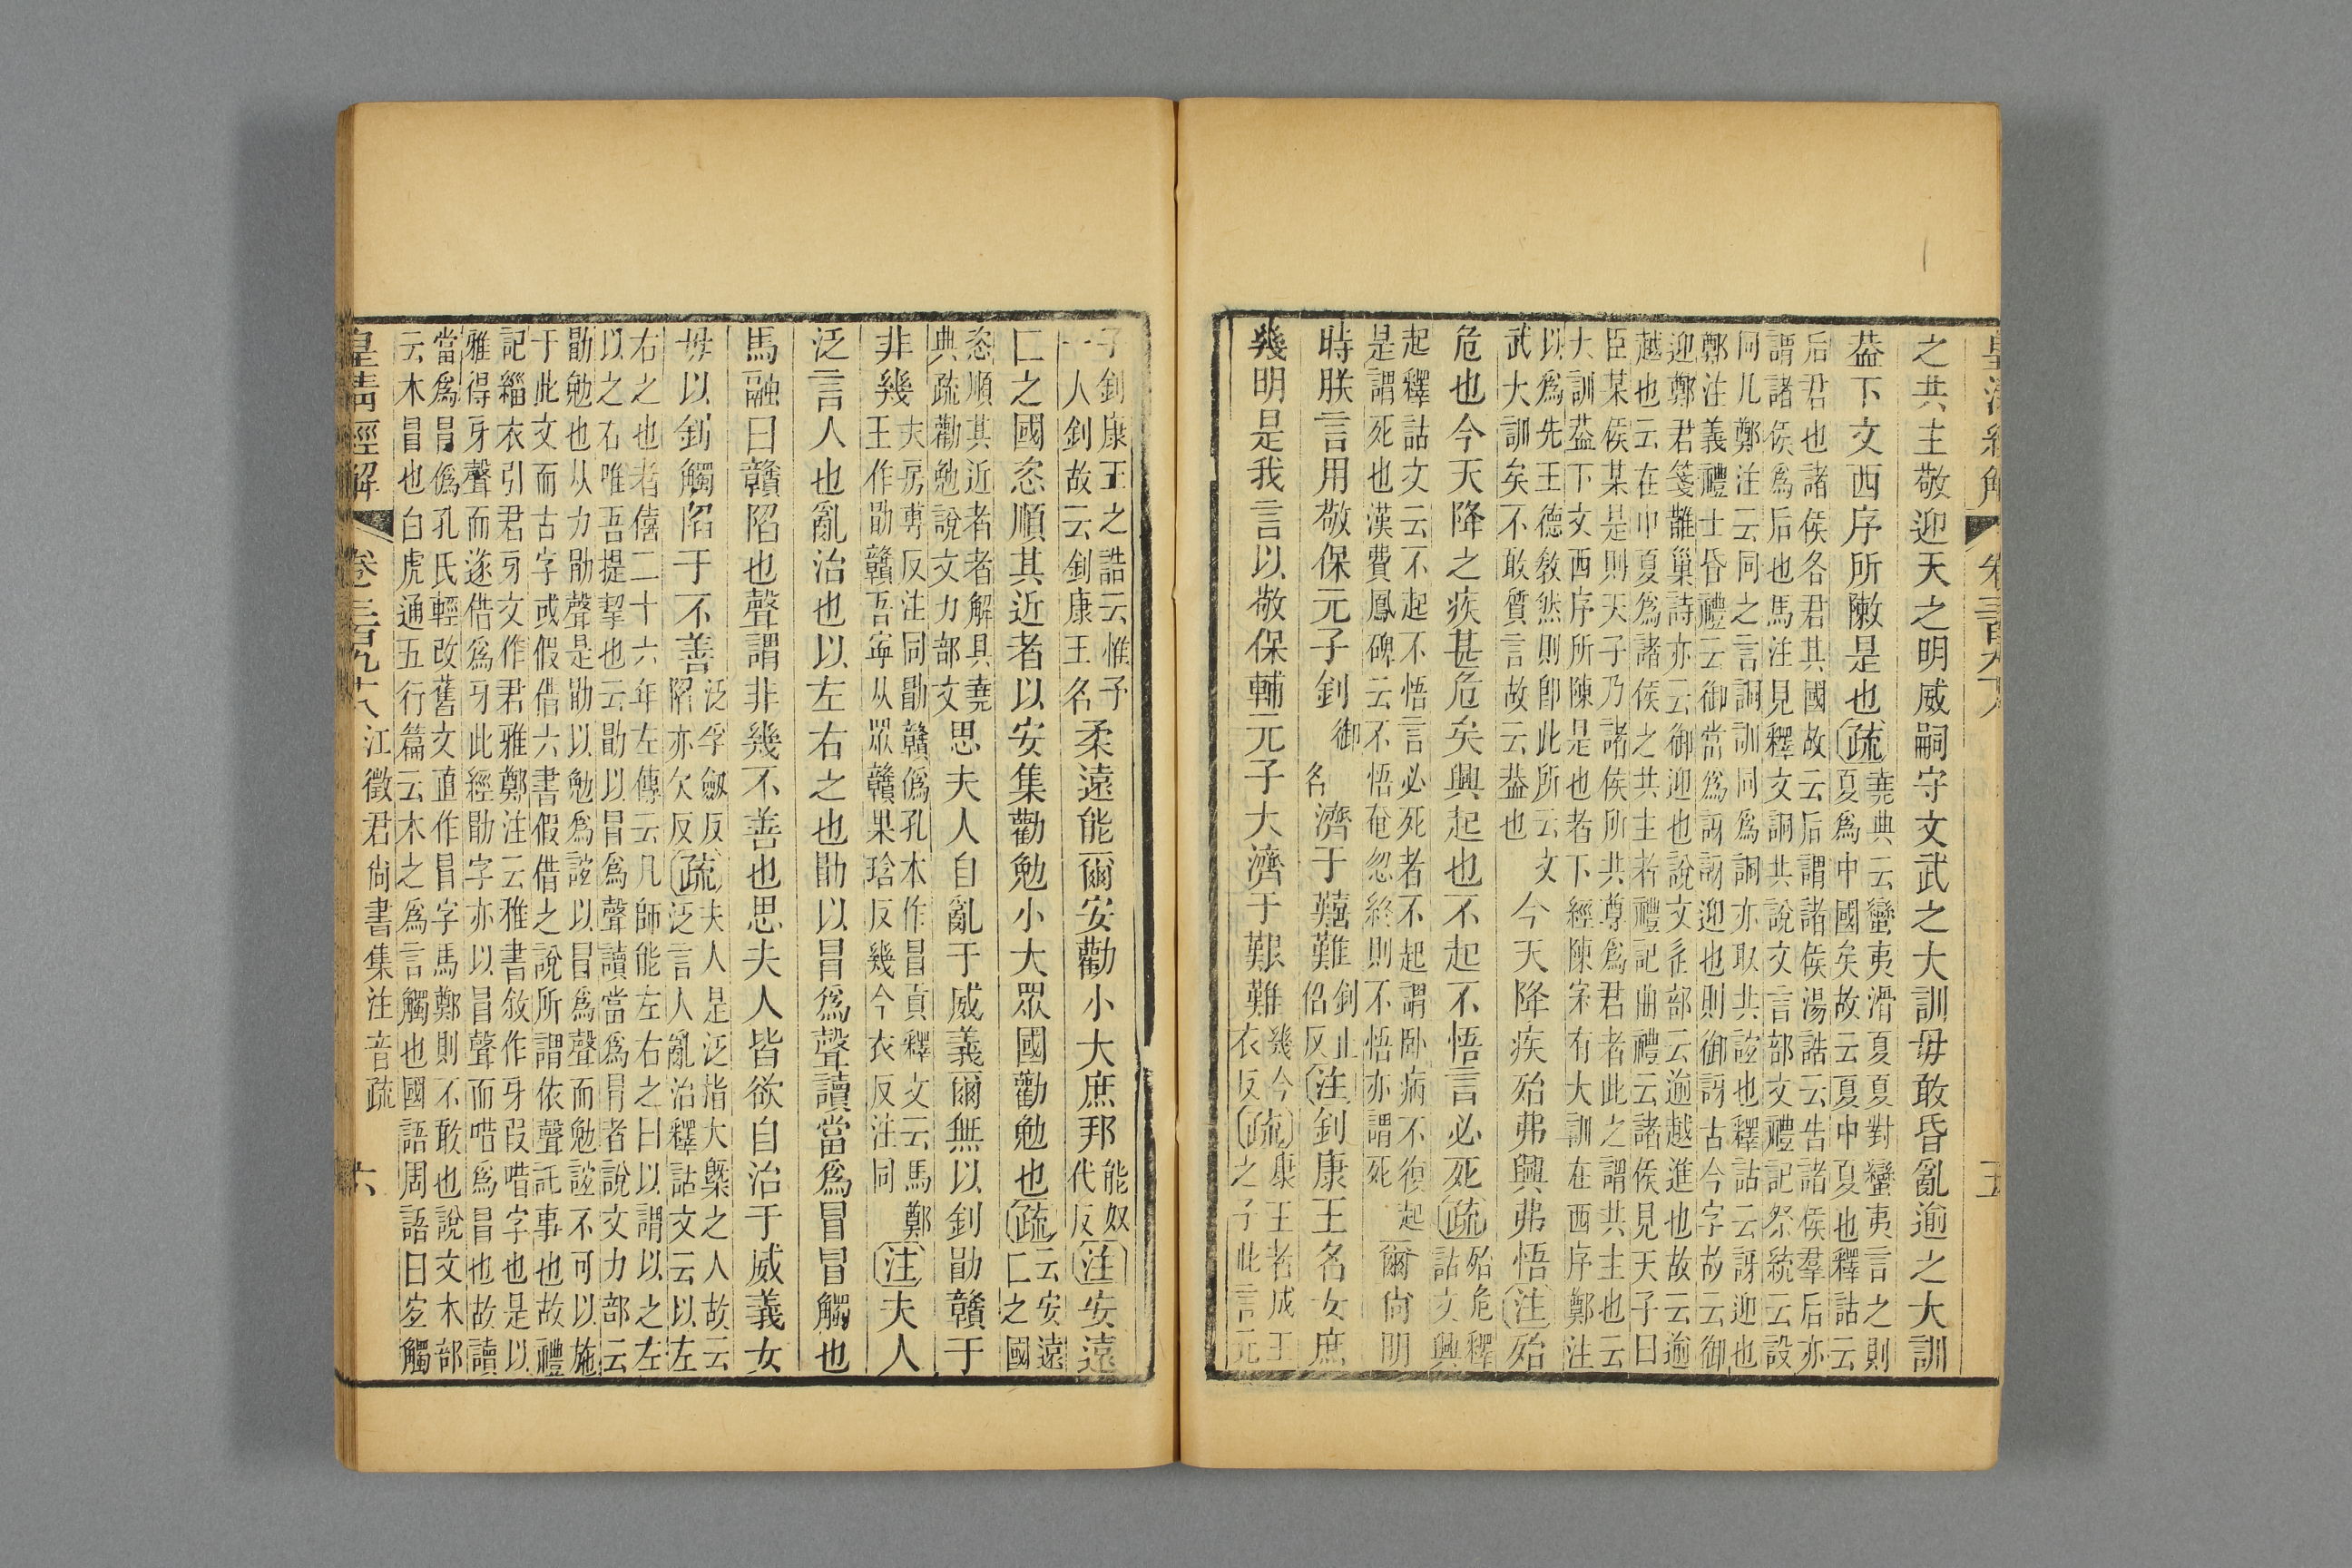 之共主敬迎天之明威嗣守文武之大訓毋敢昏亂逾之大訓
葢下文西序所敶是也疏堯典云蠻夷滑夏夏對蠻夷言之則
夏爲中國矣故云夏中夏也釋詁云
后君也諸侯各君其國故云后謂諸侯湯誥云告諸侯羣后亦
謂諸侯爲后也馬注見釋文詷共說文言部文禮記祭統云設
同几鄭注云同之言詷詷訓同爲詷亦取共誼也釋詁云訝迎也
鄭注義禮士昏禮云御當爲訝訝迎也則御訝古今字故云御
迎鄭君箋鵲巢詩亦云御迎也說文辵部云逾越進也故云逾
越也云在中夏爲諸侯之共主者禮記曲禮云諸侯見天子曰
臣某侯某是則天子乃諸侯所共尊爲君者此之謂共主也云
大訓葢下文西序所陳是也者下經陳宋有大訓在西序鄭注
以爲先王德敎然則卽此所云文
武大訓矣不敢質言故云葢也
今天降疾殆弗興弗悟注殆
危也今天降之疾甚危矣興起也不起不悟言必死疏殆危釋
詁文興
起釋詁文云不起不悟言必死者不起謂臥病不復起
是謂死也漢費鳳碑云不悟奄忽終則不悟亦謂死
爾尙明
時朕言用敬保元子釗御名濟于囏難釗止
佋反注釗康王名女庶
幾明是我言以敬保輔元子大濟于艱難幾今
衣反疏康王者成王
之子此言元
子釗康王之誥云惟予
一人釗故云釗康王名
柔遠能爾安勸小大庶邦能奴
代反注安遠
仁之國恣順其近者以安集勸勉小大眾國勸勉也疏云安遠
仁之國
恣順其近者者解具堯
典疏勸勉說文力部文
思夫人自亂于威義爾無以釗勖贛于
非幾夫房専反注同勖贛僞孔本作冒貢釋文云馬鄭
王作勖贛吾寍从眾贛果琀反幾今衣反注同
注夫人
泛言人也亂治也以左右之也勖以冒爲聲讀當爲冒冒觸也
馬融曰贛陷也聲謂非幾不善也思夫人皆欲自治于威義女
毋以釗觸陷于不善泛孚劒反
陷亦欠反疏夫人是泛指大槩之人故云
泛言人亂治釋詁文云以左
右之也者僖二十六年左傳云凡師能左右之曰以謂以之左
以之右唯吾提挈也云勖以冒爲聲讀當爲冒者說文力部云
勖勉也从力勖聲是勖以勉爲誼以冒爲聲而勉誼不可以施
于此文而古字或假借六書假借之說所謂依聲託事也故禮
記緇衣引君牙文作君雅鄭注云雅書敘作牙叚喈字也是以
雅得牙聲而遂借爲牙此經勖字亦以冒聲而喈爲冒也故讀
當爲冒僞孔氏輕改舊文直作冒字馬鄭則不敢也說文木部
云木冒也白虎通五行篇云木之爲言觸也國語周語曰宎觸
皇淸經解 卷三百九十八 江徵君尙書集注音疏 六